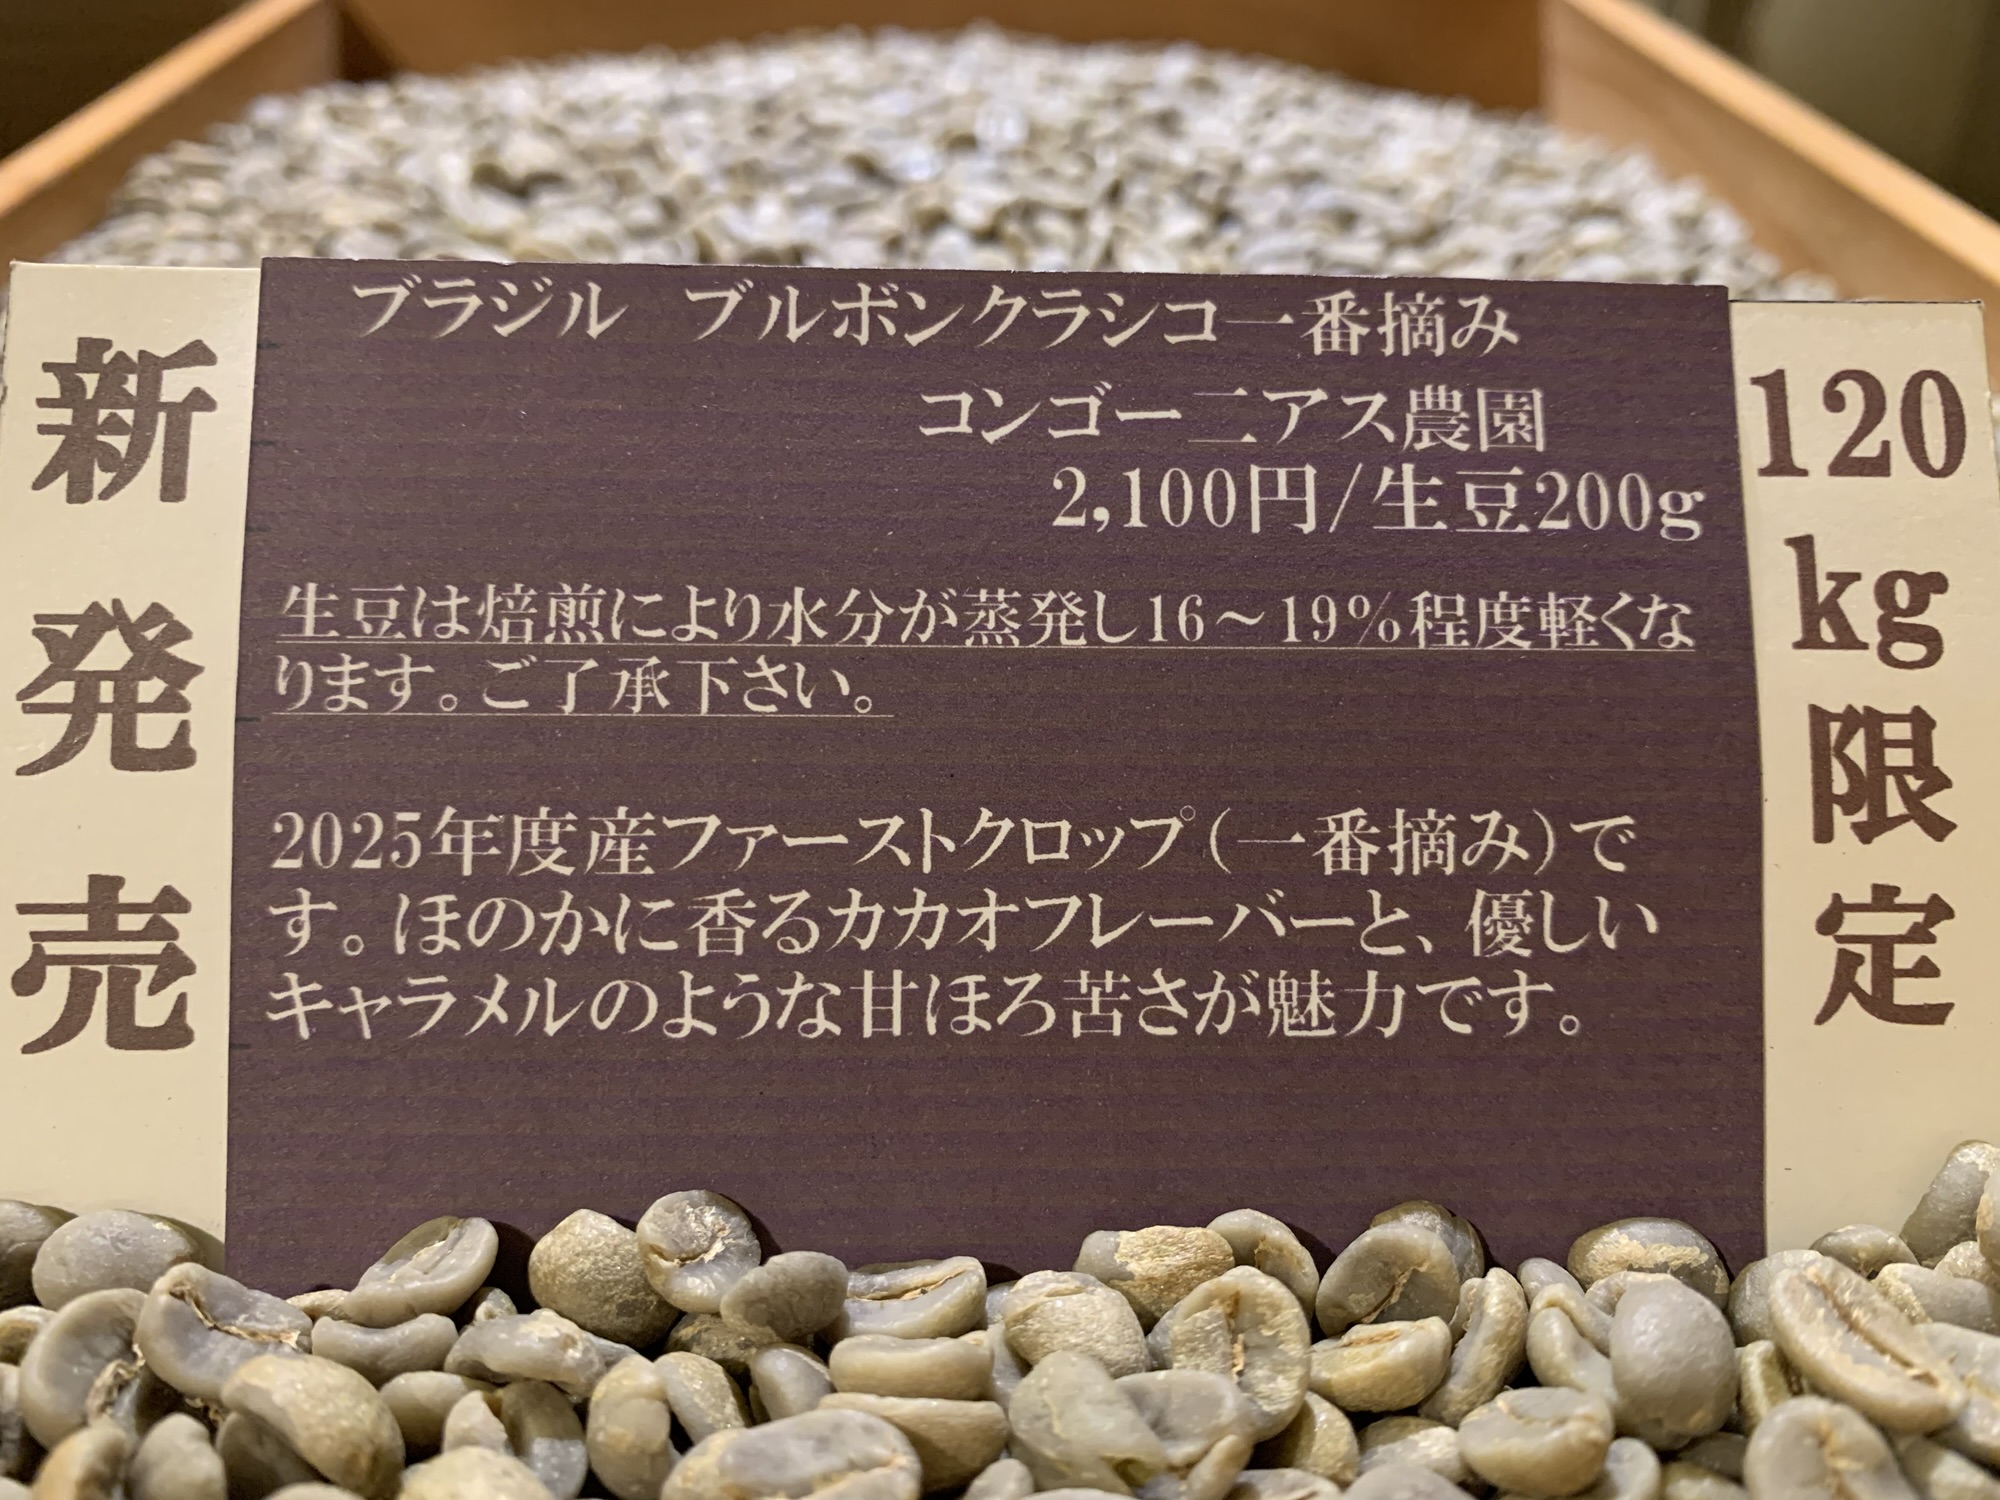 新発売
ブラジル ブルボンクラシコ一番摘み
コンゴーニアス農園
2,100円/生豆200g
生豆は焙煎により水分が蒸発し16～19%程度軽くな
ります。ご了承下さい。
2025年度産ファーストクロップ(一番摘み)で
す。ほのかに香るカカオフレーバーと、優しい
キャラメルのような甘ほろ苦さが魅力です。
120kg限定